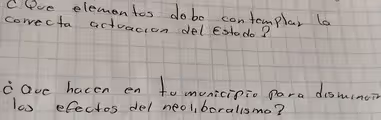 ¿Que elementos debe contemplar la
correcta actuacion del Estado?
¿Que hacen en tu municipio para disminuir
los efectos del neoliberalismo?